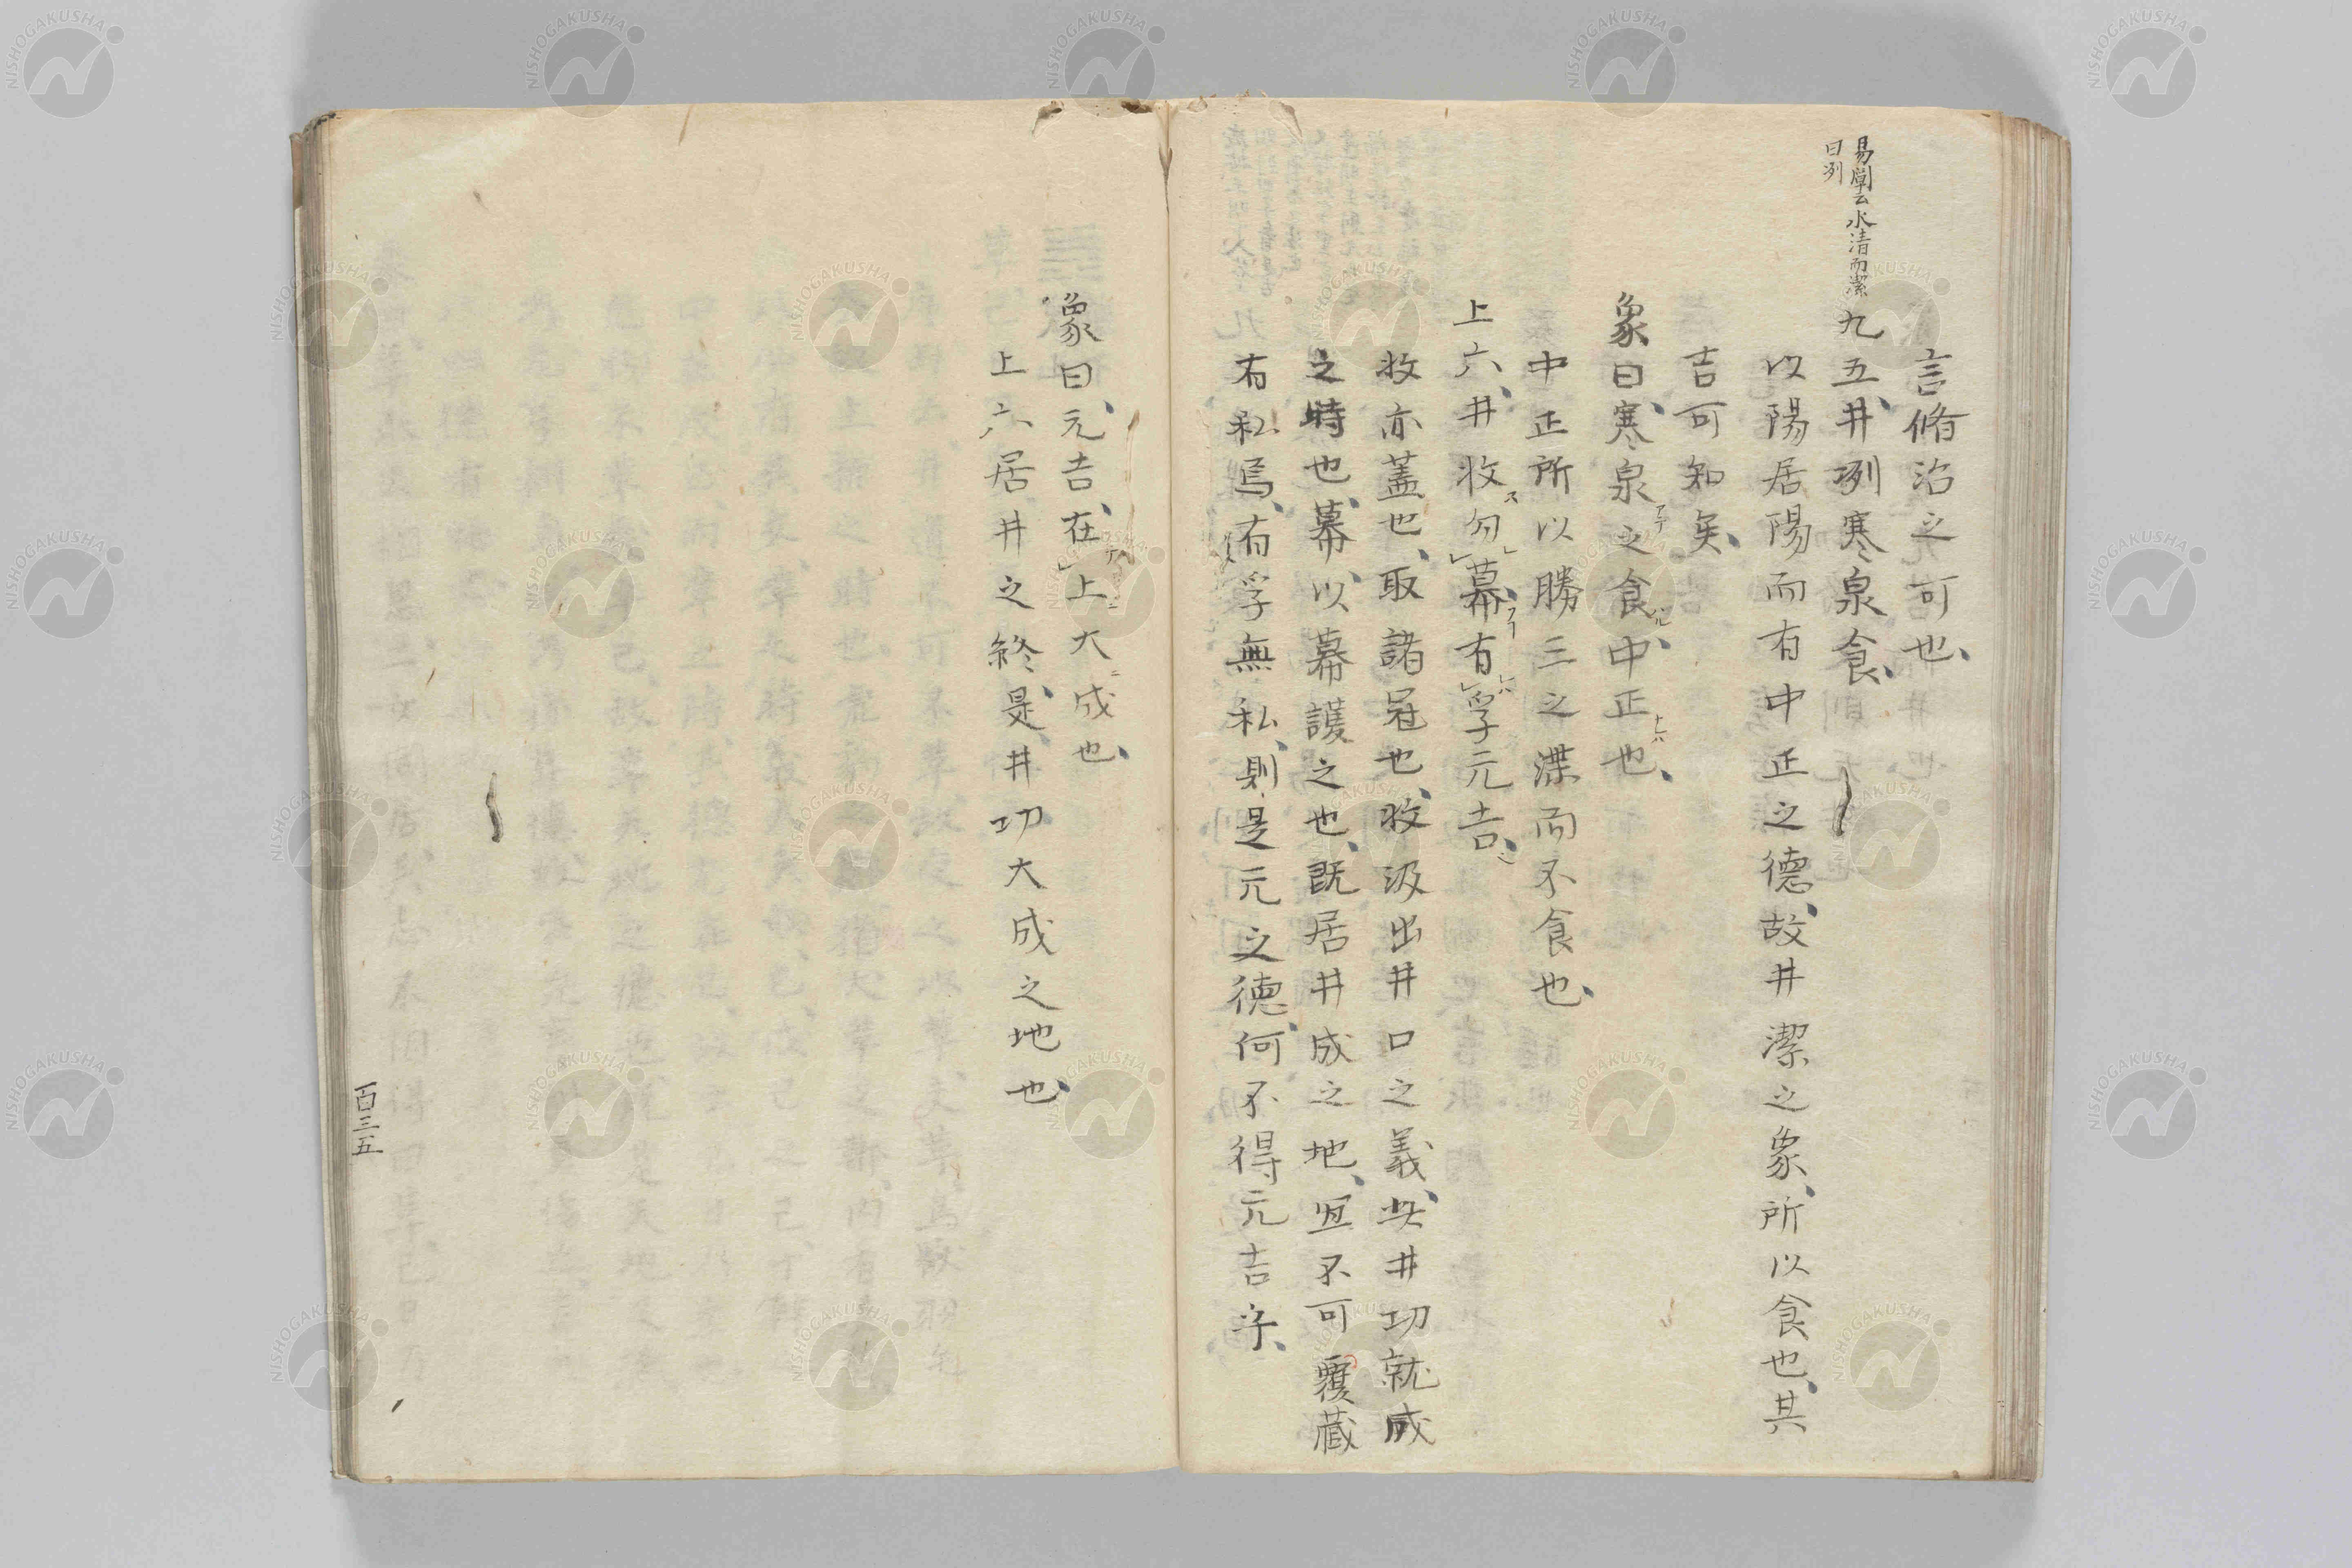 言脩治之可也、
易學云水清而潔
曰冽
九五、井冽寒泉食、
以陽居陽而有中正之德、故井潔之象、所以食也、其
吉可知矣、
象曰、寒泉之食、中正也、
中正所以勝三之渫而不食也、
上六、井收勿幕、有孚元吉、
收亦蓋也、取諸冠也、收汲出井口之義、此井功就成
之時也、幕、以幕護之也、既居井成之地、宜不可覆藏
有私焉、有孚無私、則是元之德、何不得元吉乎、
象曰、元吉、在上大成也、
上六居井之終、是井功大成之地也、
百三五
NISHOGAKUSHA